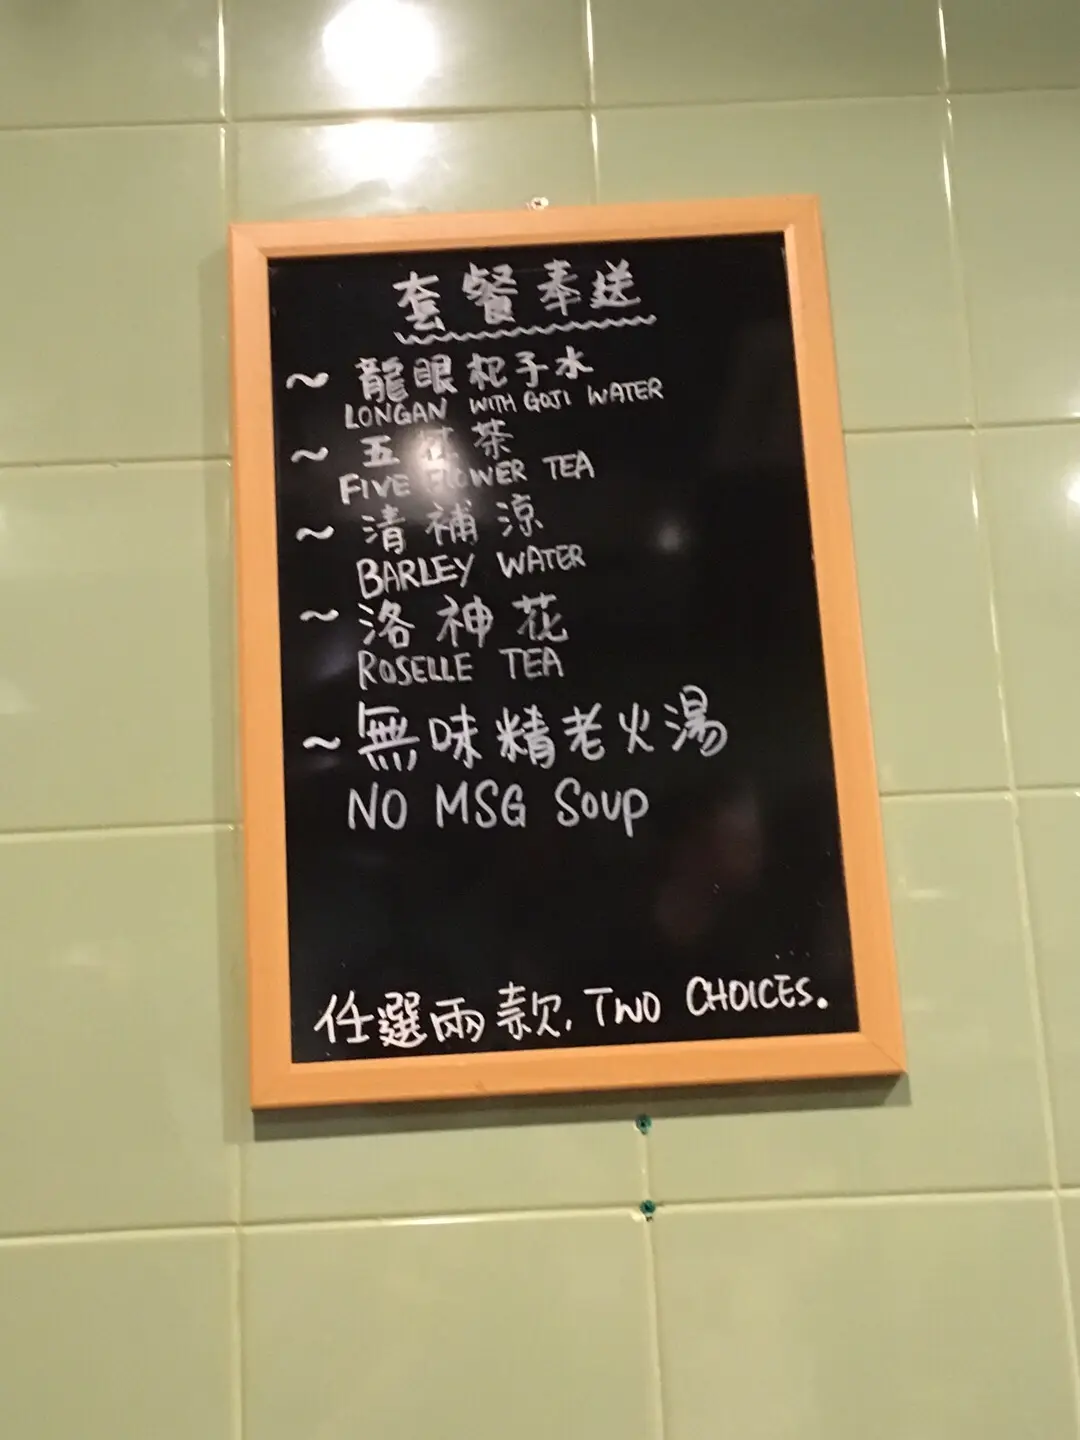 套餐奉送
~ 龍眼杞子水
LONGAN WITH GOJI WATER
~ 五花茶
FIVE FLOWER TEA
~ 清補涼
BARLEY WATER
~ 洛神花
ROSELLE TEA
~ 無味精老火湯
NO MSG SOUP
任選兩款, TWO CHOICES.